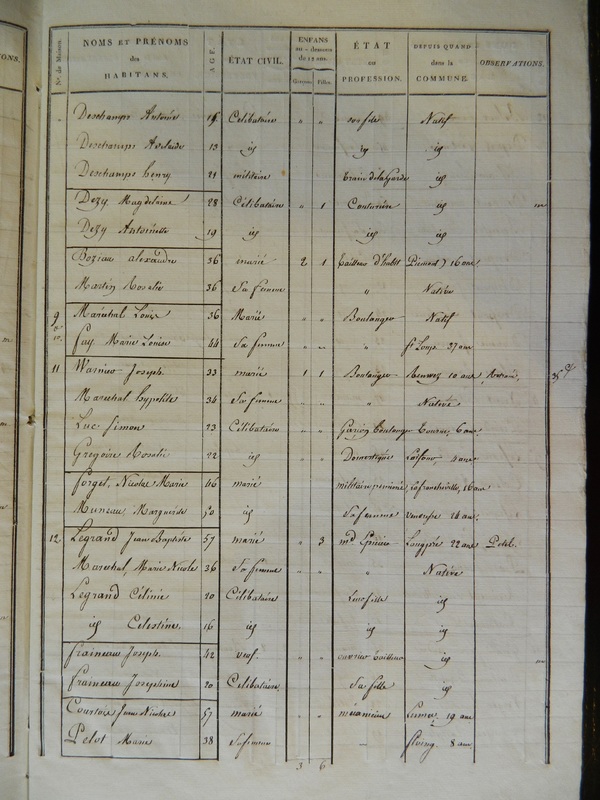 N.os de Maison. NOMS ET PRÉNOMS des HABITANS. AGE. ÉTAT CIVIL. ENFANS au-dessous de 12 ans. Garçons. Filles. ÉTAT ou PROFESSION. DEPUIS QUAND dans la COMMUNE. OBSERVATIONS.
Deschamps Antoine Célibataire " " Natif
Deschamps Adelaide 13 id id id
Deschamps henry 21 militaire id
Dezy Magdelaine 28 Célibataire " 1 Couturière id
Dezy Antoinette 19 id id id
Boziau alexandre 36 marié 2 1 tailleur d'habit 16 ans
Martin Rosalie 36 Sa femme " Native
9 Maréchal Louis 36 Marié " " Boulanger Natif
fay Marie Louise 44 Sa femme " " " St Loup 27 ans
11 Warnier Joseph 33 marié 1 1 Boulanger Renwez 10 ans
Marechal hypolite 34 Sa femme " Native
Luc Simon 23 Célibataire garçon Boulanger 6 ans
Gregoire Rosalie 22 id Domestique 4 ans
forget, Nicolas Marie 46 marié militaire pensioné, Lafrancheville, 16 ans
Muneau Marguerite 50 id Sa femme 14 ans
12 Legrand Jean Baptiste 57 marié " 3 md Epicier 22 ans
Marechal, Marie Nicole 36 Sa femme " Native
Legrand Célinie 20 Célibataire id
id Celestine 16 id id id
fraineau Joseph 42 veuf " " ouvrier tailleur id
fraineau Josephine 20 Celibataire Sa fille id
Courtois Jean Nicolas 57 marié " " 19 ans
Pelot Marie 38 Sa femme 8 ans
3 6